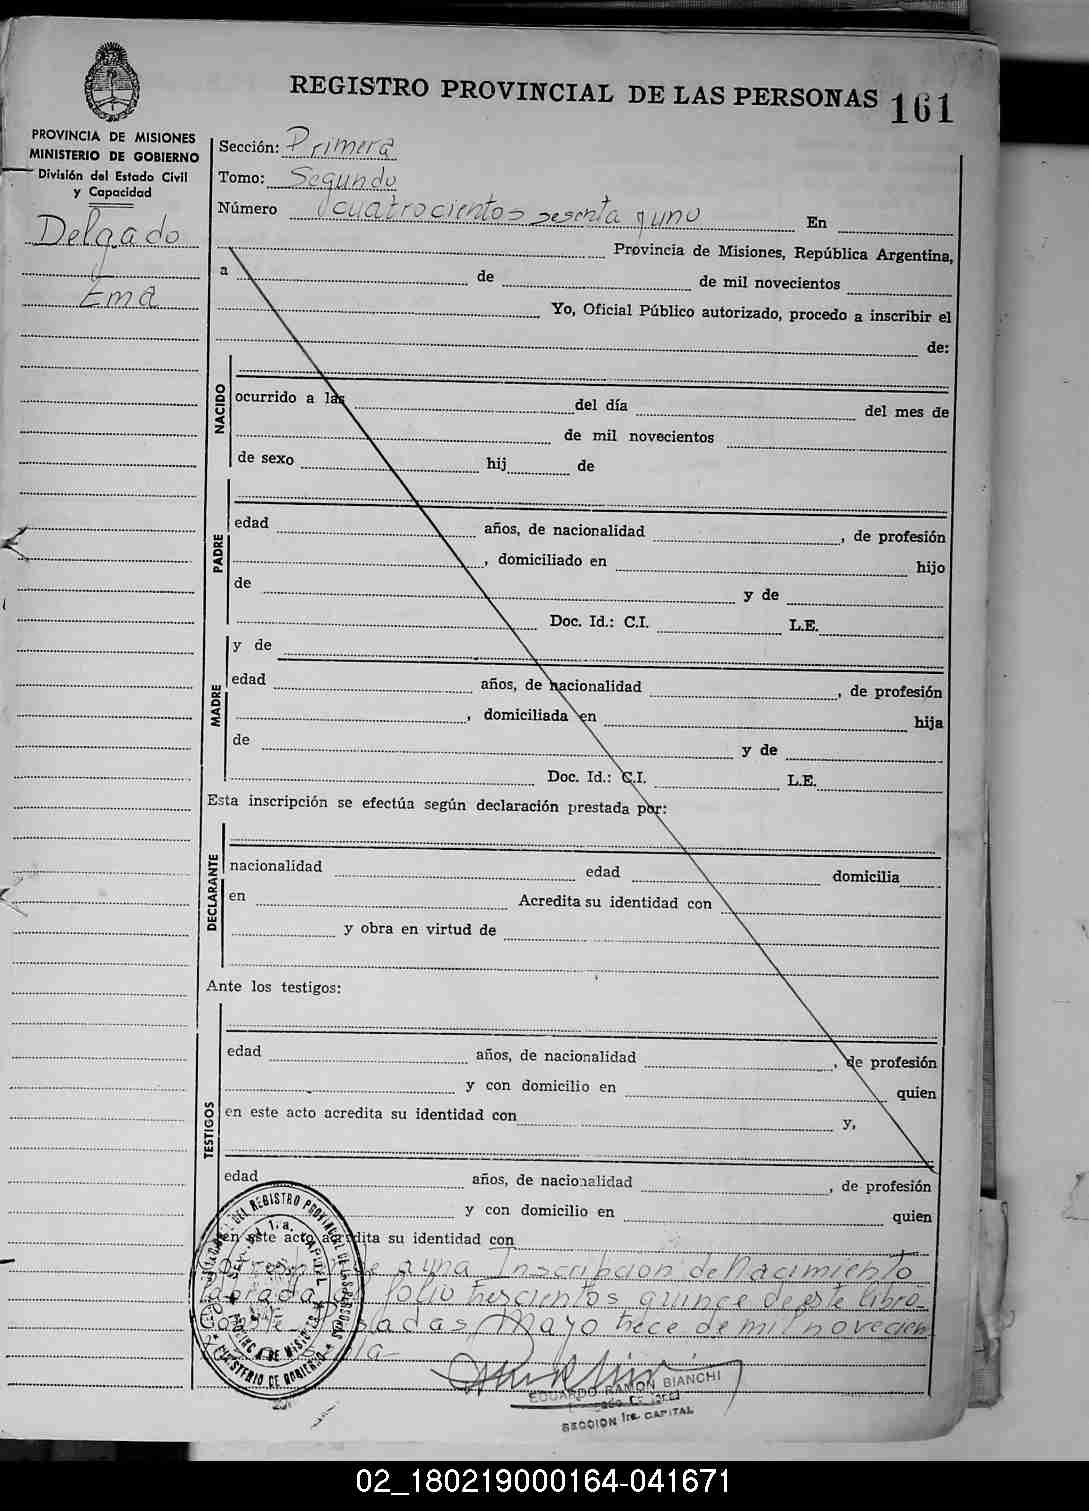 REGISTRO PROVINCIAL DE LAS PERSONAS 161
PROVINCIA DE MISIONES
MINISTERIO DE GOBIERNO
División del Estado Civil
y Capacidad
Delgado
Ema
Sección: Primera
Tomo: Segundo
Número cuatrocientos sesenta y uno En
Provincia de Misiones, República Argentina,
a de de mil novecientos
Yo, Oficial Público autorizado, procedo a inscribir el
de:
NACIDO
ocurrido a las del día del mes de
de mil novecientos
de sexo hij de
PADRE
edad años, de nacionalidad , de profesión
, domiciliado en hijo
de y de
Doc. Id.: C.I. L.E.
MADRE
y de
edad años, de nacionalidad , de profesión
, domiciliada en hija
de y de
Doc. Id.: C.I. L.E.
Esta inscripción se efectúa según declaración prestada por:
DECLARANTE
nacionalidad edad domicilia
en Acredita su identidad con
y obra en virtud de
Ante los testigos:
TESTIGOS
edad años, de nacionalidad , de profesión
y con domicilio en quien
en este acto acredita su identidad con y,
edad años, de nacionalidad , de profesión
y con domicilio en quien
en este acto acredita su identidad con
a una Inscripcion de Nacimiento
labrada al folio trescientos quince de este libro-
Posadas, Mayo trece de mil novecien
EDUARDO RAMON BIANCHI
SECCION 1ra. CAPITAL
DEL REGISTRO PROVINCIAL DE LAS PERSONAS
MINISTERIO DE GOBIERNO
02_180219000164-041671